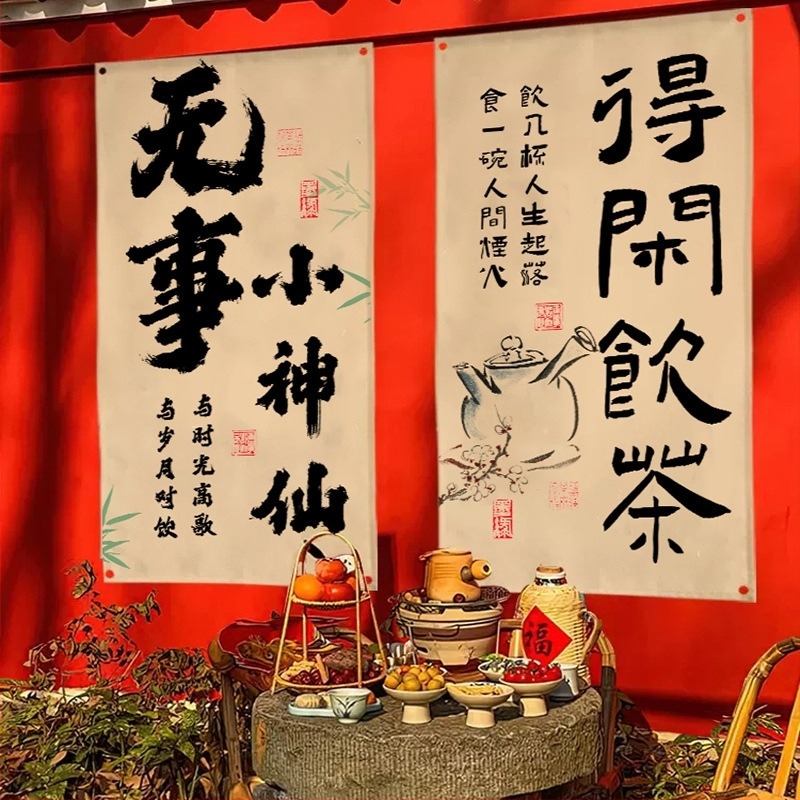 无事
小神仙
与时光高歌
与岁月对饮
得閑飲茶
飲几杯人生起落
食一碗人間煙火
福